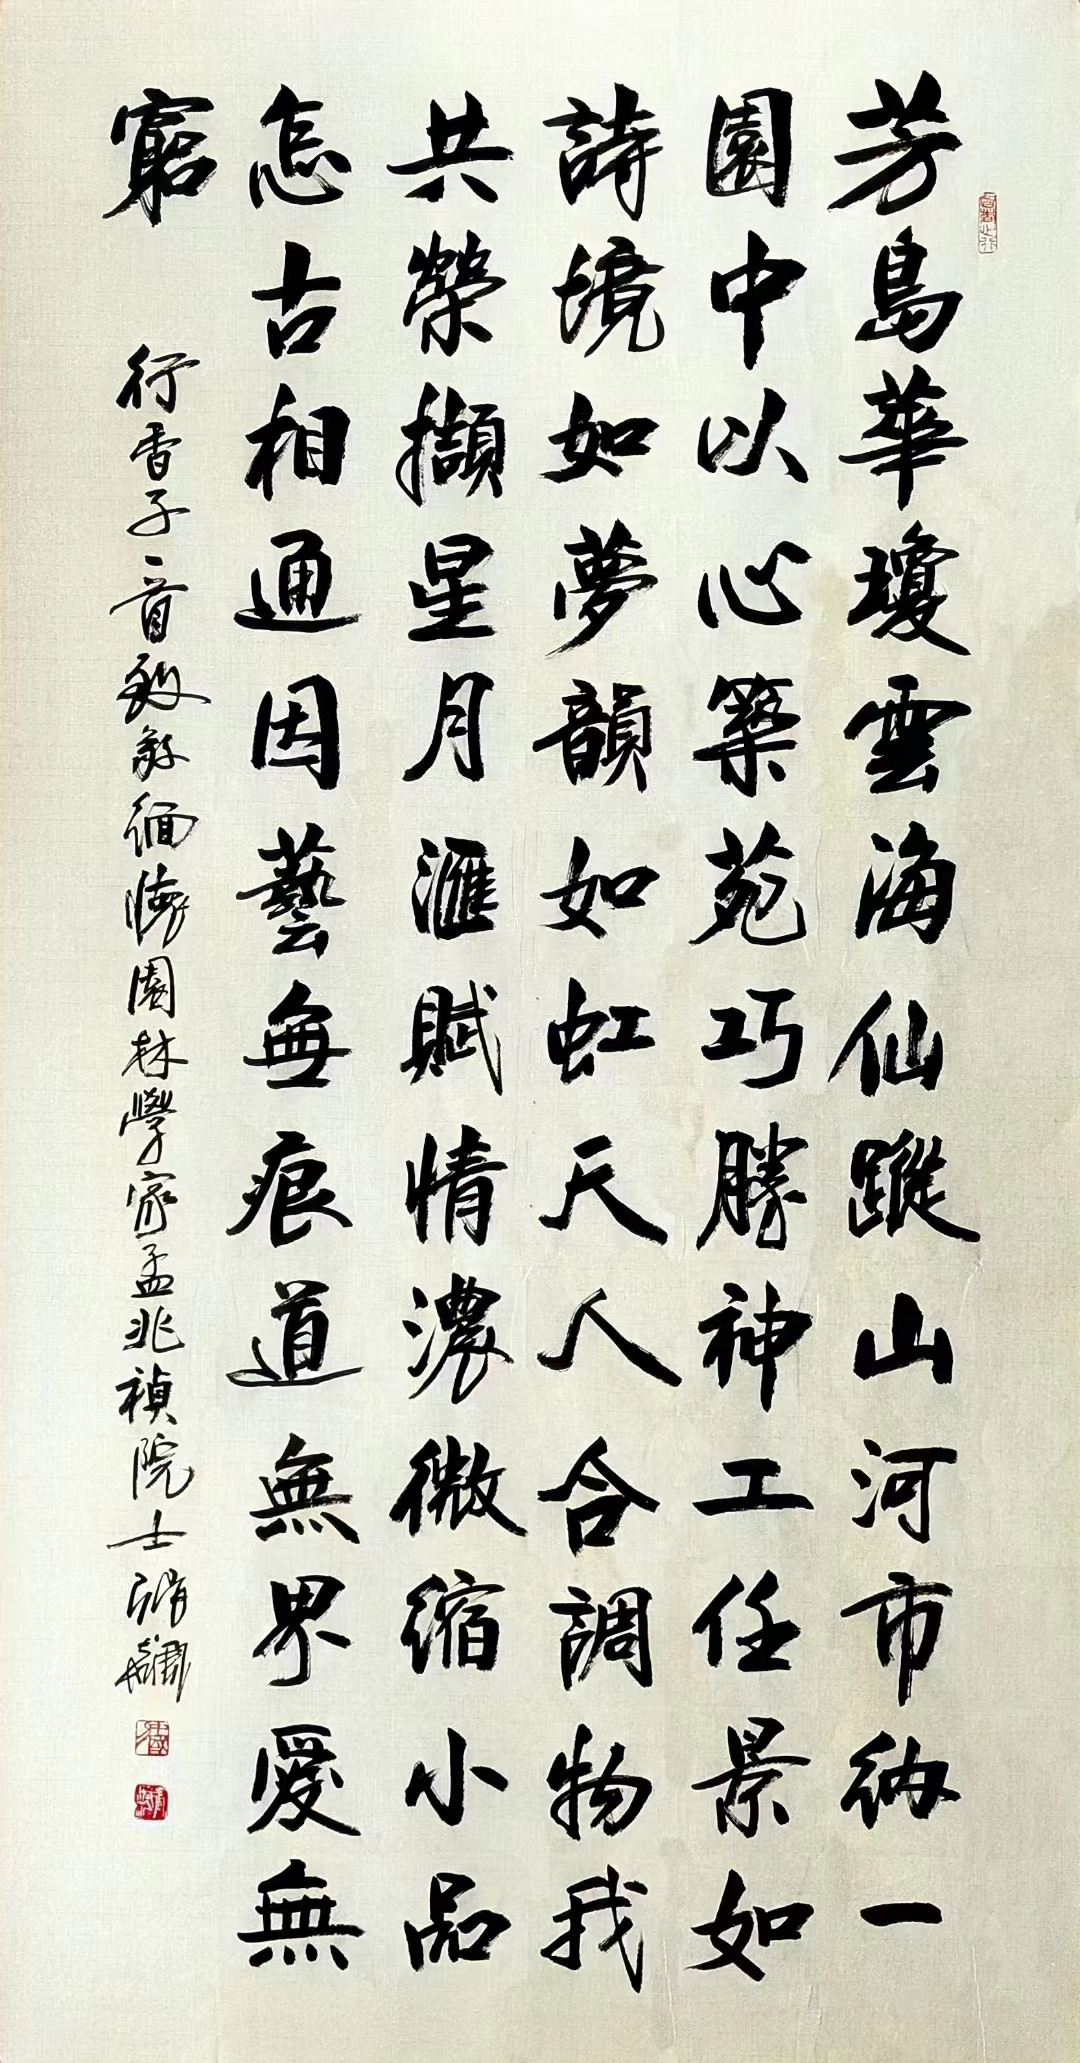 芳島華瓊雲海仙蹤山河市納一
園中以心築苑巧勝神工任景如
詩境如夢韻如虹天人合調物我
共榮擷星月滙賦情濃微縮小品
怎古相通因藝無痕道無界愛無
窮
行香子一首致敬緬懷園林學家孟兆禎院士